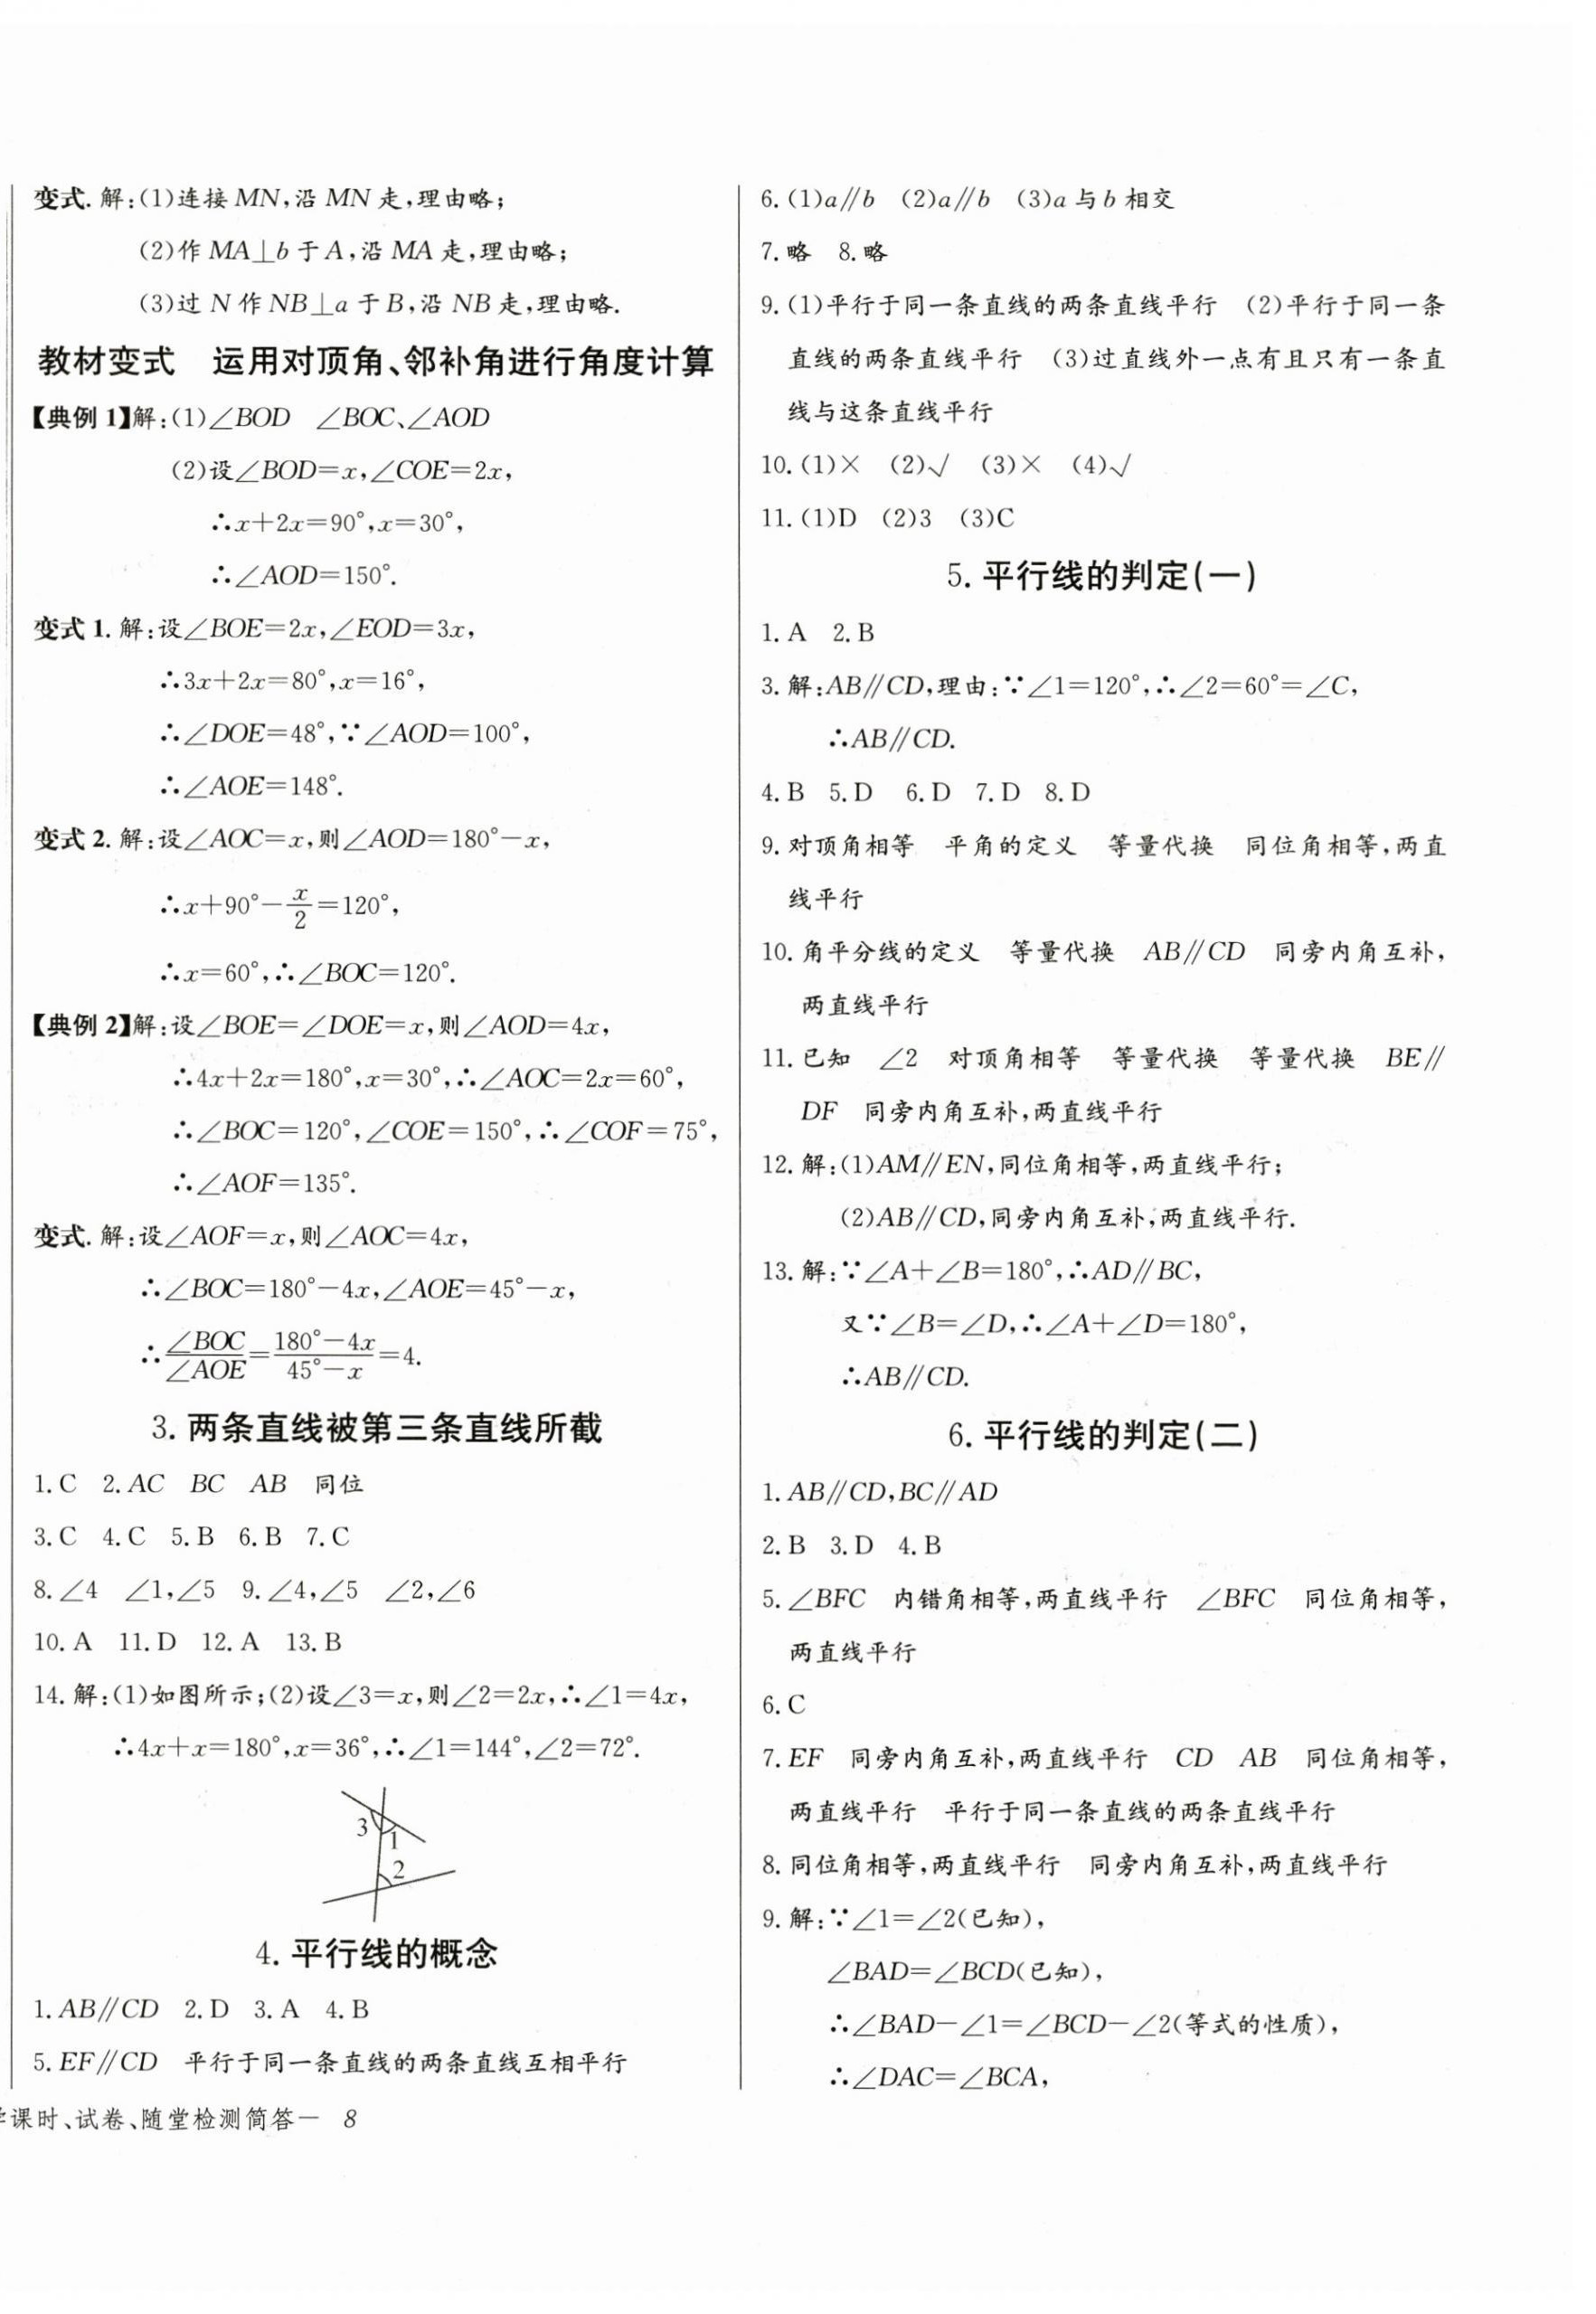 变式. 解:(1)连接 MN,沿 MN 走,理由略;
(2)作 MA⊥b 于 A,沿 MA 走,理由略;
(3)过 N 作 NB⊥a 于 B,沿 NB 走,理由略.
教材变式 运用对顶角、邻补角进行角度计算
【典例 1】解:(1)∠BOD ∠BOC、∠AOD
(2)设∠BOD=x,∠COE=2x,
∴x+2x=90°,x=30°,
∴∠AOD=150°.
变式 1. 解:设∠BOE=2x,∠EOD=3x,
∴3x+2x=80°,x=16°,
∴∠DOE=48°,∵∠AOD=100°,
∴∠AOE=148°.
变式 2. 解:设∠AOC=x,则∠AOD=180°-x,
∴x+90°-x/2=120°,
∴x=60°,∴∠BOC=120°.
【典例 2】解:设∠BOE=∠DOE=x,则∠AOD=4x,
∴4x+2x=180°,x=30°,∴∠AOC=2x=60°,
∴∠BOC=120°,∠COE=150°,∴∠COF=75°,
∴∠AOF=135°.
变式. 解:设∠AOF=x,则∠AOC=4x,
∴∠BOC=180°-4x,∠AOE=45°-x,
∴∠BOC/∠AOE=(180°-4x)/(45°-x)=4.
3. 两条直线被第三条直线所截
1. C 2. AC BC AB 同位
3. C 4. C 5. B 6. B 7. C
8. ∠4 ∠1,∠5 9. ∠4,∠5 ∠2,∠6
10. A 11. D 12. A 13. B
14. 解:(1)如图所示;(2)设∠3=x,则∠2=2x,∴∠1=4x,
∴4x+x=180°,x=36°,∴∠1=144°,∠2=72°.
3
1
2
4. 平行线的概念
1. AB∥CD 2. D 3. A 4. B
5. EF∥CD 平行于同一条直线的两条直线互相平行
课时、试卷、随堂检测简答— 8
6. (1)a∥b (2)a∥b (3)a 与 b 相交
7. 略 8. 略
9. (1)平行于同一条直线的两条直线平行 (2)平行于同一条
直线的两条直线平行 (3)过直线外一点有且只有一条直
线与这条直线平行
10. (1)× (2)√ (3)× (4)√
11. (1)D (2)3 (3)C
5. 平行线的判定(一)
1. A 2. B
3. 解:AB∥CD,理由:∵∠1=120°,∴∠2=60°=∠C,
∴AB∥CD.
4. B 5. D 6. D 7. D 8. D
9. 对顶角相等 平角的定义 等量代换 同位角相等,两直
线平行
10. 角平分线的定义 等量代换 AB∥CD 同旁内角互补,
两直线平行
11. 已知 ∠2 对顶角相等 等量代换 等量代换 BE∥
DF 同旁内角互补,两直线平行
12. 解:(1)AM∥EN,同位角相等,两直线平行;
(2)AB∥CD,同旁内角互补,两直线平行.
13. 解:∵∠A+∠B=180°,∴AD∥BC,
又∵∠B=∠D,∴∠A+∠D=180°,
∴AB∥CD.
6. 平行线的判定(二)
1. AB∥CD,BC∥AD
2. B 3. D 4. B
5. ∠BFC 内错角相等,两直线平行 ∠BFC 同位角相等,
两直线平行
6. C
7. EF 同旁内角互补,两直线平行 CD AB 同位角相等,
两直线平行 平行于同一条直线的两条直线平行
8. 同位角相等,两直线平行 同旁内角互补,两直线平行
9. 解:∵∠1=∠2(已知),
∠BAD=∠BCD(已知),
∴∠BAD-∠1=∠BCD-∠2(等式的性质),
∴∠DAC=∠BCA,